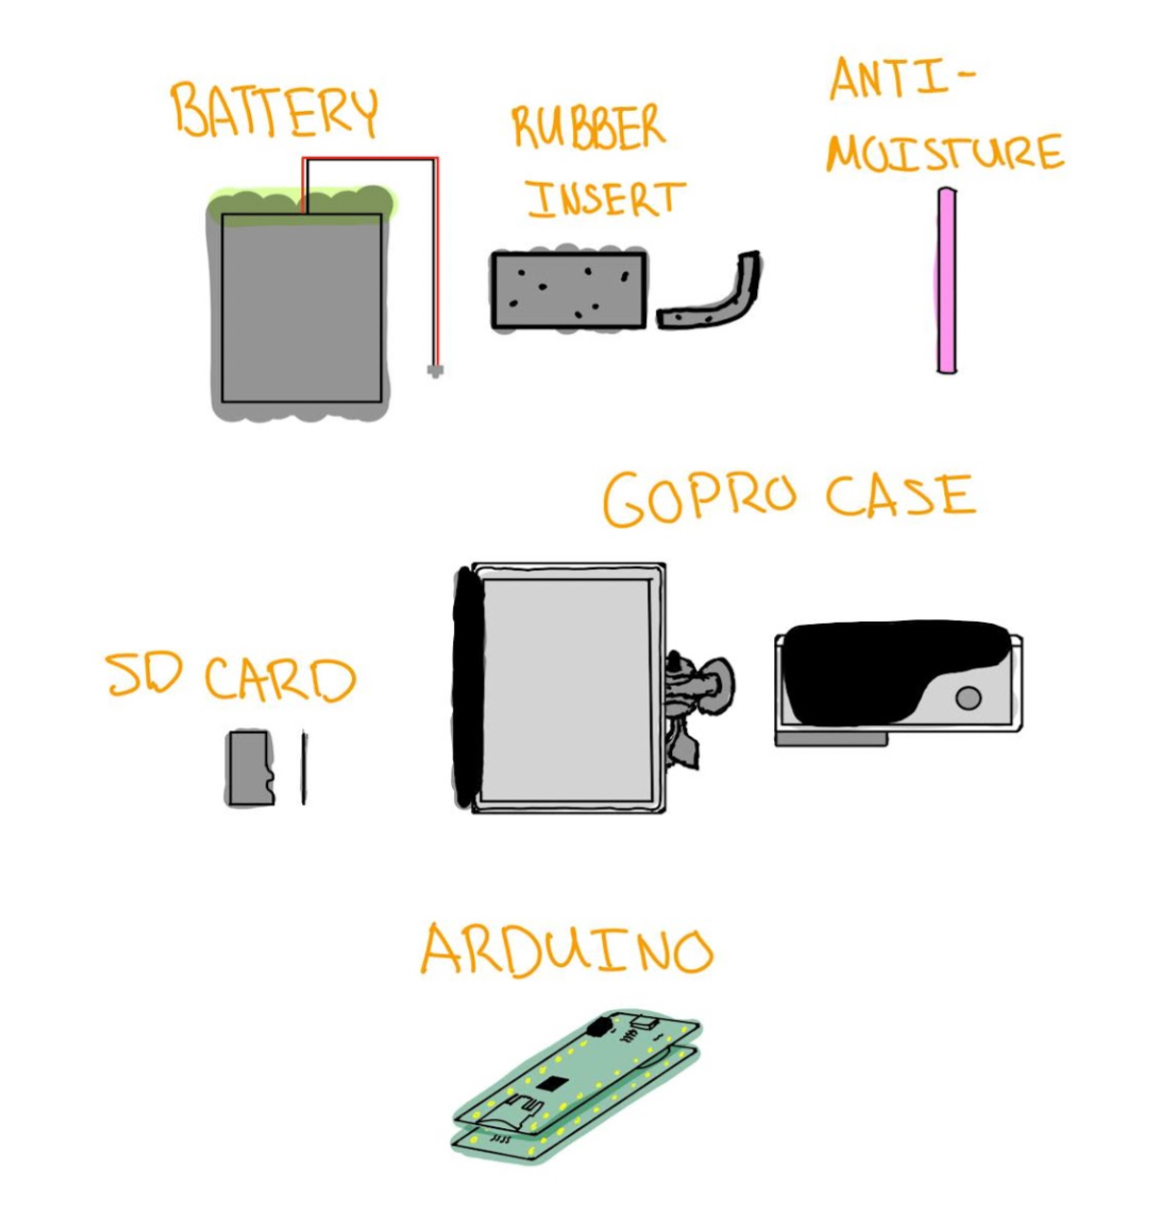 BATTERY
RUBBER
INSERT
ANTI-
MOISTURE
GOPRO CASE
SD CARD
ARDUINO